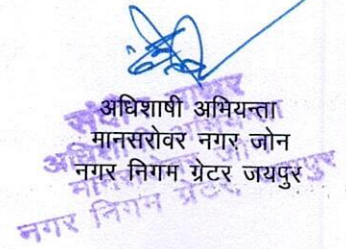 अधिशाषी अभियन्ता
मानसरोवर नगर जोन
नगर निगम ग्रेटर जयपुर
नगर निगम ग्रेटर, जयपुर